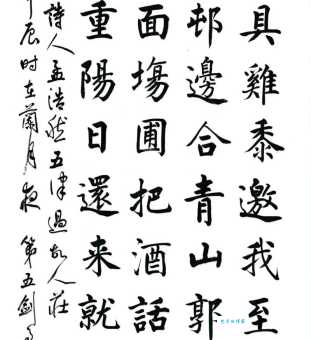 具雞黍邀我至
邨邊合青山郭
面塲圃把酒話
重陽日還来就
詩人孟浩然五律過故人莊
辰时在蘭月夜 第五劍